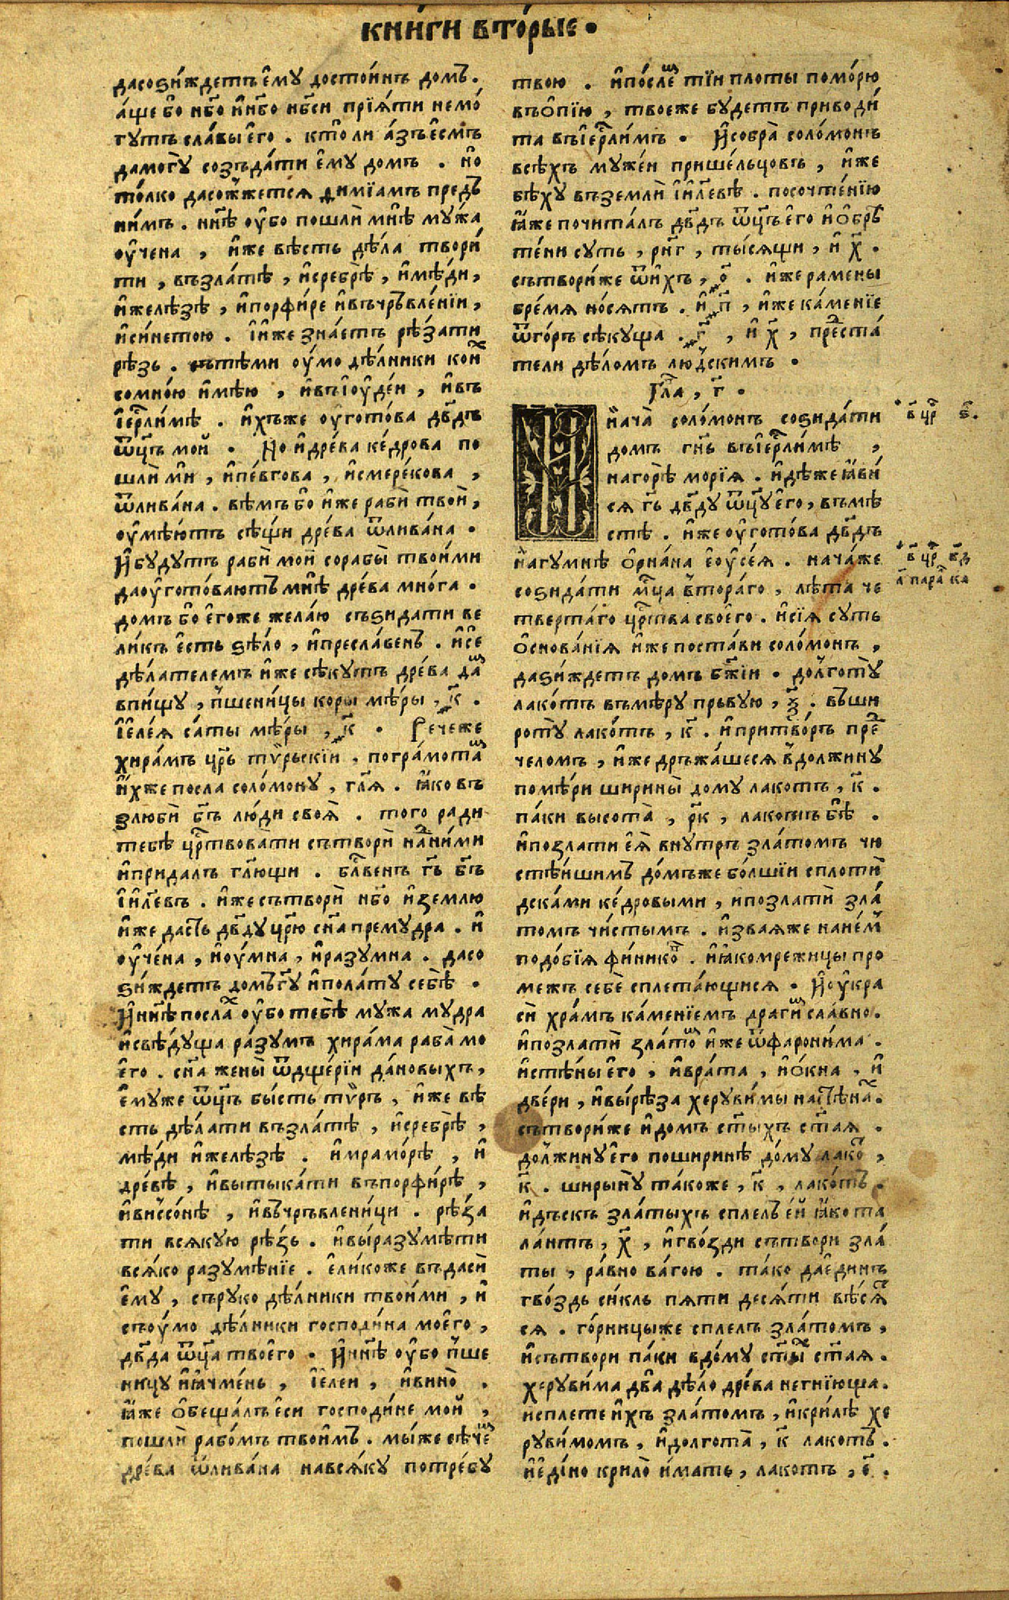 книги вторые .
дасоѕи́ждетъ ємꙋ̀ досто́инъ до́мъ .
а́ще бо нб҃о и҆нб҃о нбс҃и прїѧ́ти немо́
гꙋтъ сла́вы є҆гѡ̀ . кто́ ли а҆́зъ є҆́смъ
дамогꙋ̀ созъда́ти є҆мꙋ̀ до́мъ . но
то́лко дасожже́тсѧ ѳимїа́мъ пре́дъ
ни́мъ . нн҃ѣ ᲂу҆́бо пошлѝ мнѣ̀ мꙋ́жа
ᲂу҆че́на , и҆́же вѣ́сть дѣ́ла твори́
ти , възла́тѣ , и҆сребрѣ̀ , и҆мѣ́ди ,
и҆желѣ́зѣ , и҆порфи́ре и҆въчръвле́нїи ,
и҆си́нетою . и҆́иже зна́етъ рѣ́зати
рѣ́зь . сътѣ́ми ᲂу҆́мо дѣ́лники кои҆х
сомно́ю и҆мѣ́ю , и҆въїᲂу҆де́и , и҆въ
і҆ерл҃и́мѣ . и҆́хъже ᲂу҆гото́ва дв҃дъ
ѿц҃ъ мо́й . Но и҆древа ке́дрова по
шлѝ мѝ , и҆пе́вгова , и҆смере́кова ,
ѿлива́на . вѣ́мъ бо и҆́же рабѝ твоѝ ,
ᲂу҆мѣ́ютъ сѣщѝ дре́ва ѿлива́на .
И҆бꙋ́дꙋтъ рабѝ моѝ сорабы̀ твои́ми
даᲂу҆гото́ваютъ мнѣ̀ дре́ва мно́га .
до́мъ бо є҆го́же жела́ю съѕидати ве
ли́къ є҆́сть ѕѣ́ло , и҆пресла́венъ . и҆се́
дѣ́лателемъ и҆́же сѣкꙋ́тъ дре́ва да́м
впи́щꙋ , пшени́цы коры мѣ́ры , ҂к҃ .
і҆еле́ѧ са́ты мѣ́ры , ҂к҃ . Рече́же
хира́мъ цр҃ь тѵ́рьскїи . погра́мота
и҆́хже посла соло́монꙋ , гл҃ѧ . ꙗ҆́ко въ
злюбѝ бг҃ъ лю́ди своѧ̀ . того ради
тебѐ цр҃твовати сътворѝ над ни́ми
и҆прида́лъ гл҃ющи . бл҃ве́нъ гь҃ бг҃ъ
і҆и҃левъ . и҆́же сътворѝ нб҃о и҆зе́млю
и҆́же да́сть дв҃дꙋ цр҃ю сн҃а премꙋ́дра . и҆
ᲂу҆че́на , и҆ᲂу҆́мна , и҆разꙋ́мна . дасо
ѕи́ждетъ до́мъ гꙋ҃ и҆пола́тꙋ себѣ̀ .
И҆нн҃ѣ посла́х ᲂу҆́бо тебѣ̀ мꙋ́жа мꙋ́дра
и҆свѣ́дꙋща ра́зꙋмъ хира́ма раба̀ мо
его . сн҃а жены̀ ѿдще́рїи да́новыхъ ,
є҆мꙋже ѿц҃ъ бы́сть тѵ́ръ , и҆́же вѣ́
сть дѣ́лати възла́тѣ , и҆сребрѣ̀ ,
мѣ́ди и҆желѣ́зѣ . и҆мра́морѣ , и҆
дре́вѣ , и҆вытыка́ти въпорфи́рѣ ,
и҆виссо́нѣ , и҆въчръвлени́ци . рѣ́за
ти всѧ́кꙋю рѣ́зь . и҆вы́разꙋмѣти
всѧ́ко разꙋмѣ́нїе . є҆ли́коже въда́си
є҆мꙋ̀ , сърꙋко дѣ́лники твои́ми , и҆
съᲂу҆́мо дѣ́лники господи́на моего̀ ,
дв҃да ѿц҃а твоего̀ . И҆нн҃ѣ ᲂу҆́бо пше
ни́цꙋ и҆ꙗ҆чме́нь , і҆еле́и , и҆вино̀ .
ꙗ҆́же ѻ҆беща́лъ є҆си господи́не мо́й ,
пошлѝ рабо́мъ твои́мъ . мы́же сѣче́м
дре́ва ѿлива́на навсѧ́кꙋ потре́бꙋ
твою . и҆после́м тїи плоты помо́рю
въѻ҆пїю , твое́же бꙋ́детъ приводи́
та въі҆ерл҃и́мъ . И҆собра̀ соло́монъ
всѣ́хъ мꙋже́и прише́льцовъ , и҆́же
бѣ́хꙋ въземлѝ і҆и҃левѣ . посочте́нїю
ꙗ҆́же почита́лъ дв҃дъ ѿц҃ъ є҆го̀ и҆ѻ҆брѣ
те́ни сꙋть , рн҃г , ты́сѧщи , и҆ х҃ .
сътвори́же ѿни́хъ , ҂о҃ . и҆́же рамены
бре́мѧ но́сѧтъ . и҆ ҂п҃ , и҆́же ка́менїе
ѿго́ръ сѣкꙋ́ща . ҂г҃ , и҆ х҃ , приста́
тели дѣло́мъ людским҄ъ .
Гла҃ , г҃ .
Нача̀ соло́монъ соѕида́ти
до́мъ гн҃ь въі҆ерл҃и́мѣ ,
нагорѣ̀ морїѧ . и҆дѣ́же ꙗ҆ви́
сѧ гь҃ дв҃дꙋ ѿц҃ꙋ є҆го̀ , въмѣ́
стѣ . и҆́же ᲂу҆гото́ва дв҃дъ
нагꙋмнѣ̀ ѻ҆рна́на є҆ᲂу҆се́ѧ . нача́же
соѕида́ти мц҃а вто́раго , лѣ́та че
тверта́го цр҃тва своего̀ . и҆сїѧ̀ сꙋть
ѻ҆снова́нїѧ и҆́же поста́ви соло́монъ ,
даѕи́ждетъ до́мъ бж҃їи . долготꙋ̀
лако́тъ въмѣ́рꙋ пръвꙋю , ѯ҃ . въши
ротꙋ̀ лако́тъ , к҃ . и҆притво́ръ пре́д
чело́мъ , и҆́же дръжа́шесѧ вдолжинꙋ
помѣ́ри ширины̀ до́мꙋ лако́тъ , к҃ .
па́ки высота̀ , рк҃ , лако́тъ бѣ̀ .
и҆позлати є҆ѧ̀ внꙋ́тръ зла́томъ чи
стѣ́ишимъ до́мъже бо́лшїи сплотѝ
дска́ми ке́дровыми , и҆позлатѝ зла́
томъ чи́стымъ . и҆зваѧже нане́мъ
подо́бїѧ фи́ников . и҆ꙗ҆́комрежицы про
межъ себѐ сплета́ющисѧ . И҆ᲂу҆кра
сѝ хра́мъ ка́менїемъ драги́м сла́вно .
и҆позлатѝ зла́том и҆́же ѿфарони́ма .
и҆стѣ́ны є҆го̀ , и҆врата̀ , и҆ѻ҆́кна , и҆
две́ри , и҆вы́рѣза херꙋви́мы настѣ́нах .
сътвори́же и҆до́мъ ст҃ы́хъ ст҃а́ѧ .
до́лжинꙋ є҆го̀ поширинѣ̀ до́мꙋ лако́т ,
к҃ . ширынꙋ̀ та́коже , к҃ , лако́тъ .
и҆дъскъ златы́хъ сплелъ є҆й ꙗ҆́ко та
ла́нтъ , х҃ , и҆гво́зди сътвори зла
ты́ , ра́вно ва́гою . та́ко дає҆ди́нъ
гво́здь си́кль пѧ́ти десѧ́ти вѣ́сѧ
сѧ . го́рницыже сплелъ зла́томъ ,
и҆сътвори па́ки вдо́мꙋ ст҃ы́х ст҃а́ѧ .
херꙋви́ма два̀ дѣ́ло дре́ва негнїю́ща .
исплете и҆́хъ зла́томъ , и҆крилѣ̀ хе
рꙋви́момъ , и҆долгота̀ , к҃ лако́тъ .
и҆є҆ди́но крило̀ и́мать , лако́тъ , є҃ .
в҃ цр҃ ѕ҃ .
в҃ цр҃ к҃д
а҃ пара҃ ка